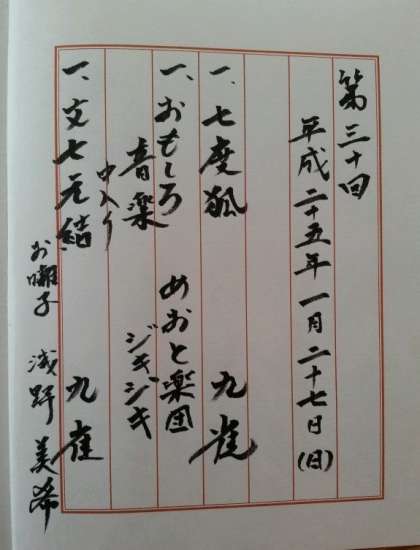 第三十回
平成二十五年一月二十七日(日)
一、七度狐 九雀
一、おもしろ音楽 めおと楽団ジキジキ
中入り
一、文七元結 九雀
お囃子 浅野美希